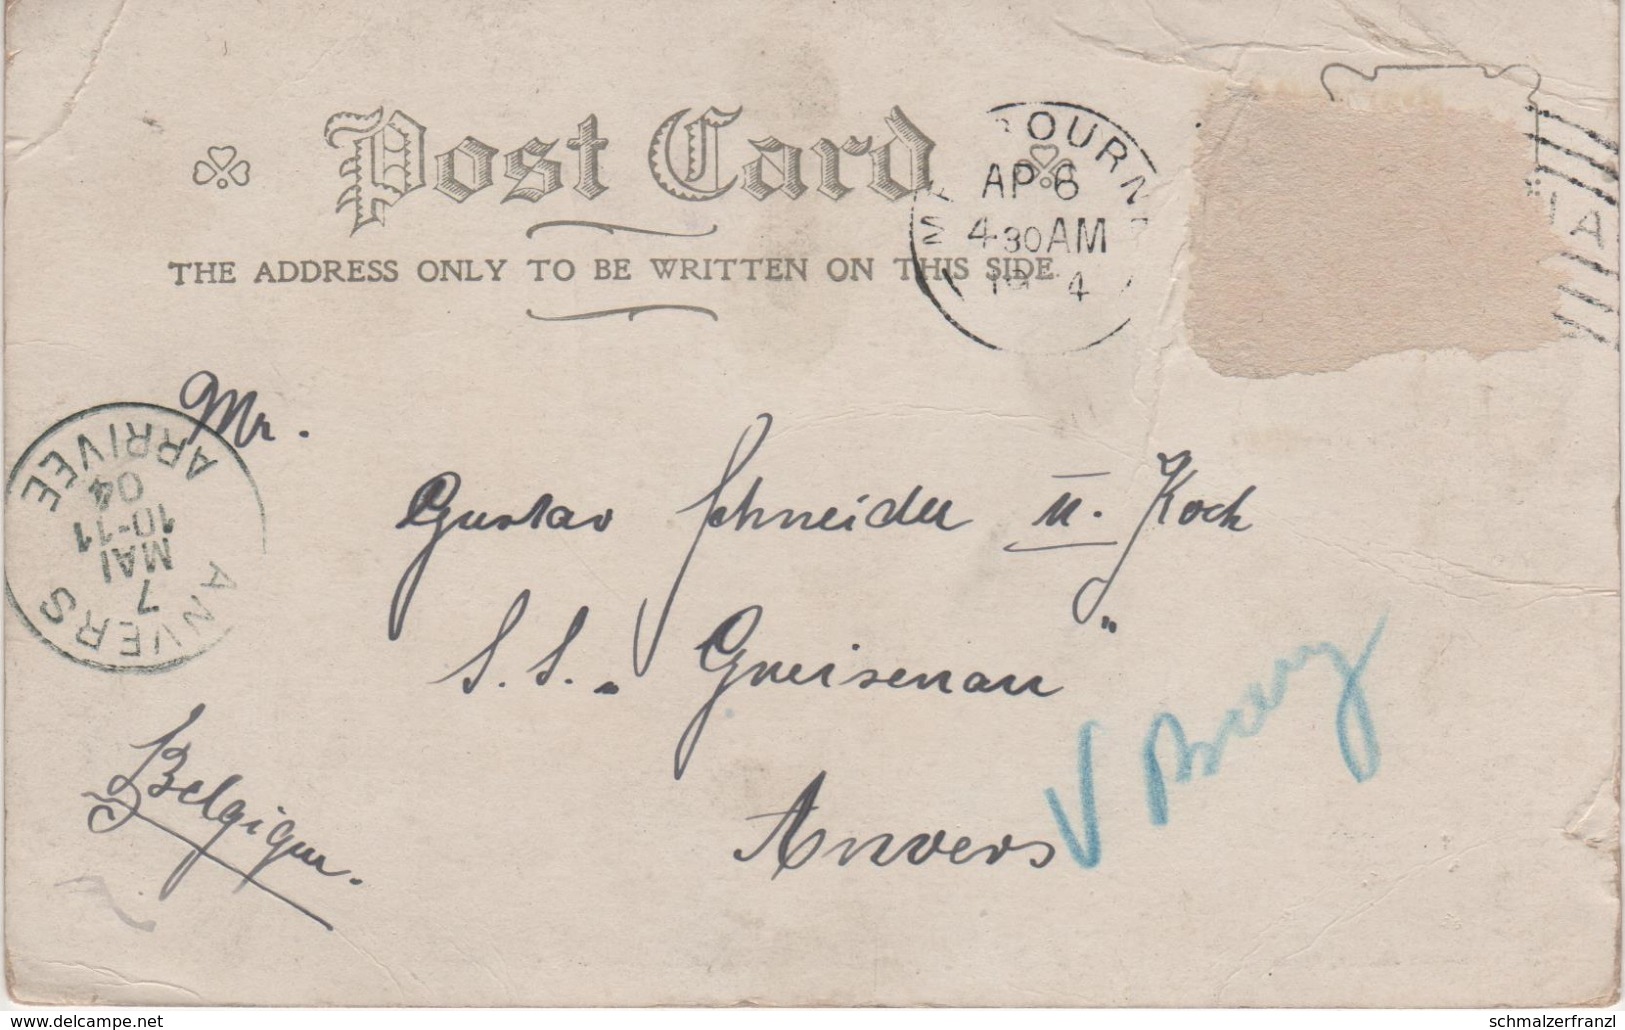 Post Card
THE ADDRESS ONLY TO BE WRITTEN ON THIS SIDE
AP 6
4 30 AM
Mr.
ANVERS
7
MAI
10-11
04
ARRIVEE
Gustav Schneider u. Koch
S.S. „ Gneisenau "
Anvers
Belgique.
www.delcampe.net
schmalzerfranzl